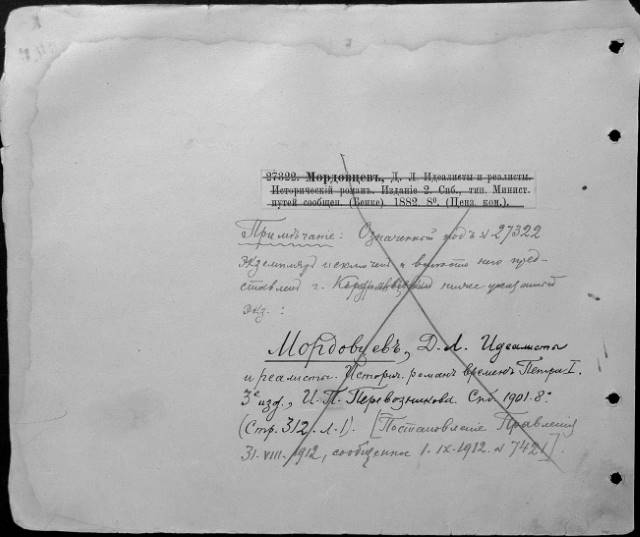 27322. Мордовцевъ, Д. Л. Идеалисты и реалисты.
Историческій романъ. Изданіе 2. Спб., тип. Минист.
путей сообщен. (Бенке) 1882. 8°. (Цена коп.).
Примѣчаніе: Означенной подъ № 27322
экземпляр исключен и вместо него пред-
ставлен г. ниже указанной
экз.:
Мордовцевъ, Д. Л. Идеалисты
и реалисты. Истории. романъ временъ Петра I.
3е изд., И. П. Перевозникова. Спб 1901. 8°
(Стр. 312. л. 1). [Постановление Правления
31. VIII. 1912, сообщенное 1. IX. 1912. № 7421].